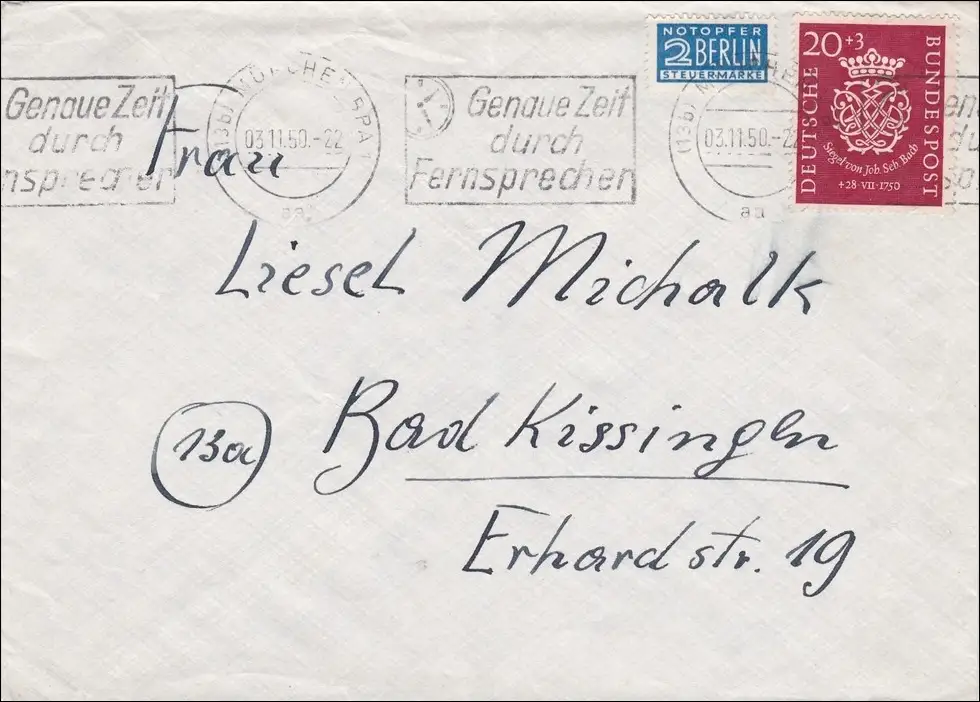 NOTOPFER
2 BERLIN
STEUERMARKE
20+3
DEUTSCHE
BUNDESPOST
Siegel von Joh. Seb. Bach
+28·VII·1750
Genaue Zeit
durch
nsprecher
(13b) MÜNCHEN BPA 1
03.11.50.-22
aa
Genaue Zeit
durch
Fernsprecher
(13b)
03.11.50.-22
aa
Frau
Liesel Michalk
13a
Bad Kissingen
Erhardstr. 19